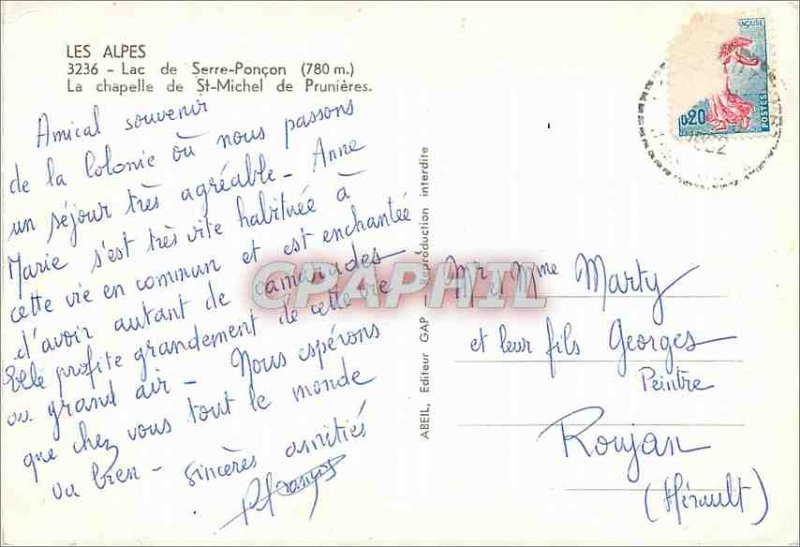 LES ALPES
3236 - Lac de Serre-Ponçon (780 m.)
La chapelle de St-Michel de Prunières.
Amical souvenir
de la Colonie où nous passons
un séjour très agréable - Anne
Marie s'est très vite habituée à
cette vie en commun et est enchantée
d'avoir autant de camarades
Elle profite grandement de cette vie
au grand air - Nous espérons
que chez vous tout le monde
va bien - Sincères amitiés
ABEIL, Editeur GAP Reproduction interdite
CPAPHIL
ÇAISE
0,20
POSTES
Mr et Mme Marty
et leur fils Georges
Peintre
Roujan
(Hérault)